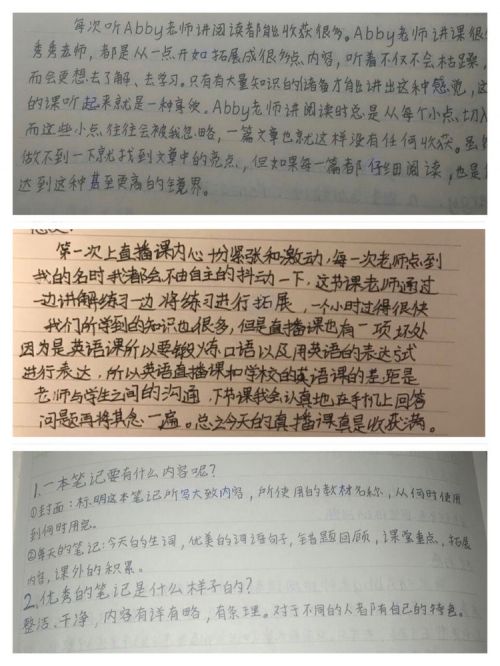 每次听Abby老师讲阅读都能收获很多。Abby老师讲课很
秀秀老师,都是从一点开始拓展成很多点内容,听着不仅不会枯燥,
而会更想去了解、去学习。只有有大量知识的储备才能讲出这种感觉,这
的课听起来就是一种享受。Abby老师讲阅读时总是从每个小点、切入
而这些小点往往会被我忽略,一篇文章也就这样没有任何收获。虽然
做不到一下就找到文章中的亮点,但如果每一篇都仔细阅读,也是
达到这种甚至更高的境界。
第一次上直播课内心十分紧张和激动,每一次老师点到
我的名时我都会不由自主的抖动一下,这节课老师通过
一边讲解练习一边将练习进行拓展,一个小时过得很快
我们所学到的知识也很多,但是直播课也有一项坏处
因为是英语课所以要锻炼口语以及用英语的表达方式
进行表达,所以英语直播课和学校的英语课的差距是
老师与学生之间的沟通,下节课我会认真地在手机上回答
问题再将其念一遍。总之今天的直播课真是收获满满。
1.一本笔记要有什么内容呢?
①封面:标明这本笔记所写大致内容,所使用的教材名称,从何时使用
到何时用完。
②每天的笔记:今天的生词,优美的词语句子,错题回顾,课堂重点、拓展
内容,课外的积累。
2.优秀的笔记是什么样子的?
整洁、干净,内容有详有略,有条理。对于不同的人都有自己的特色。